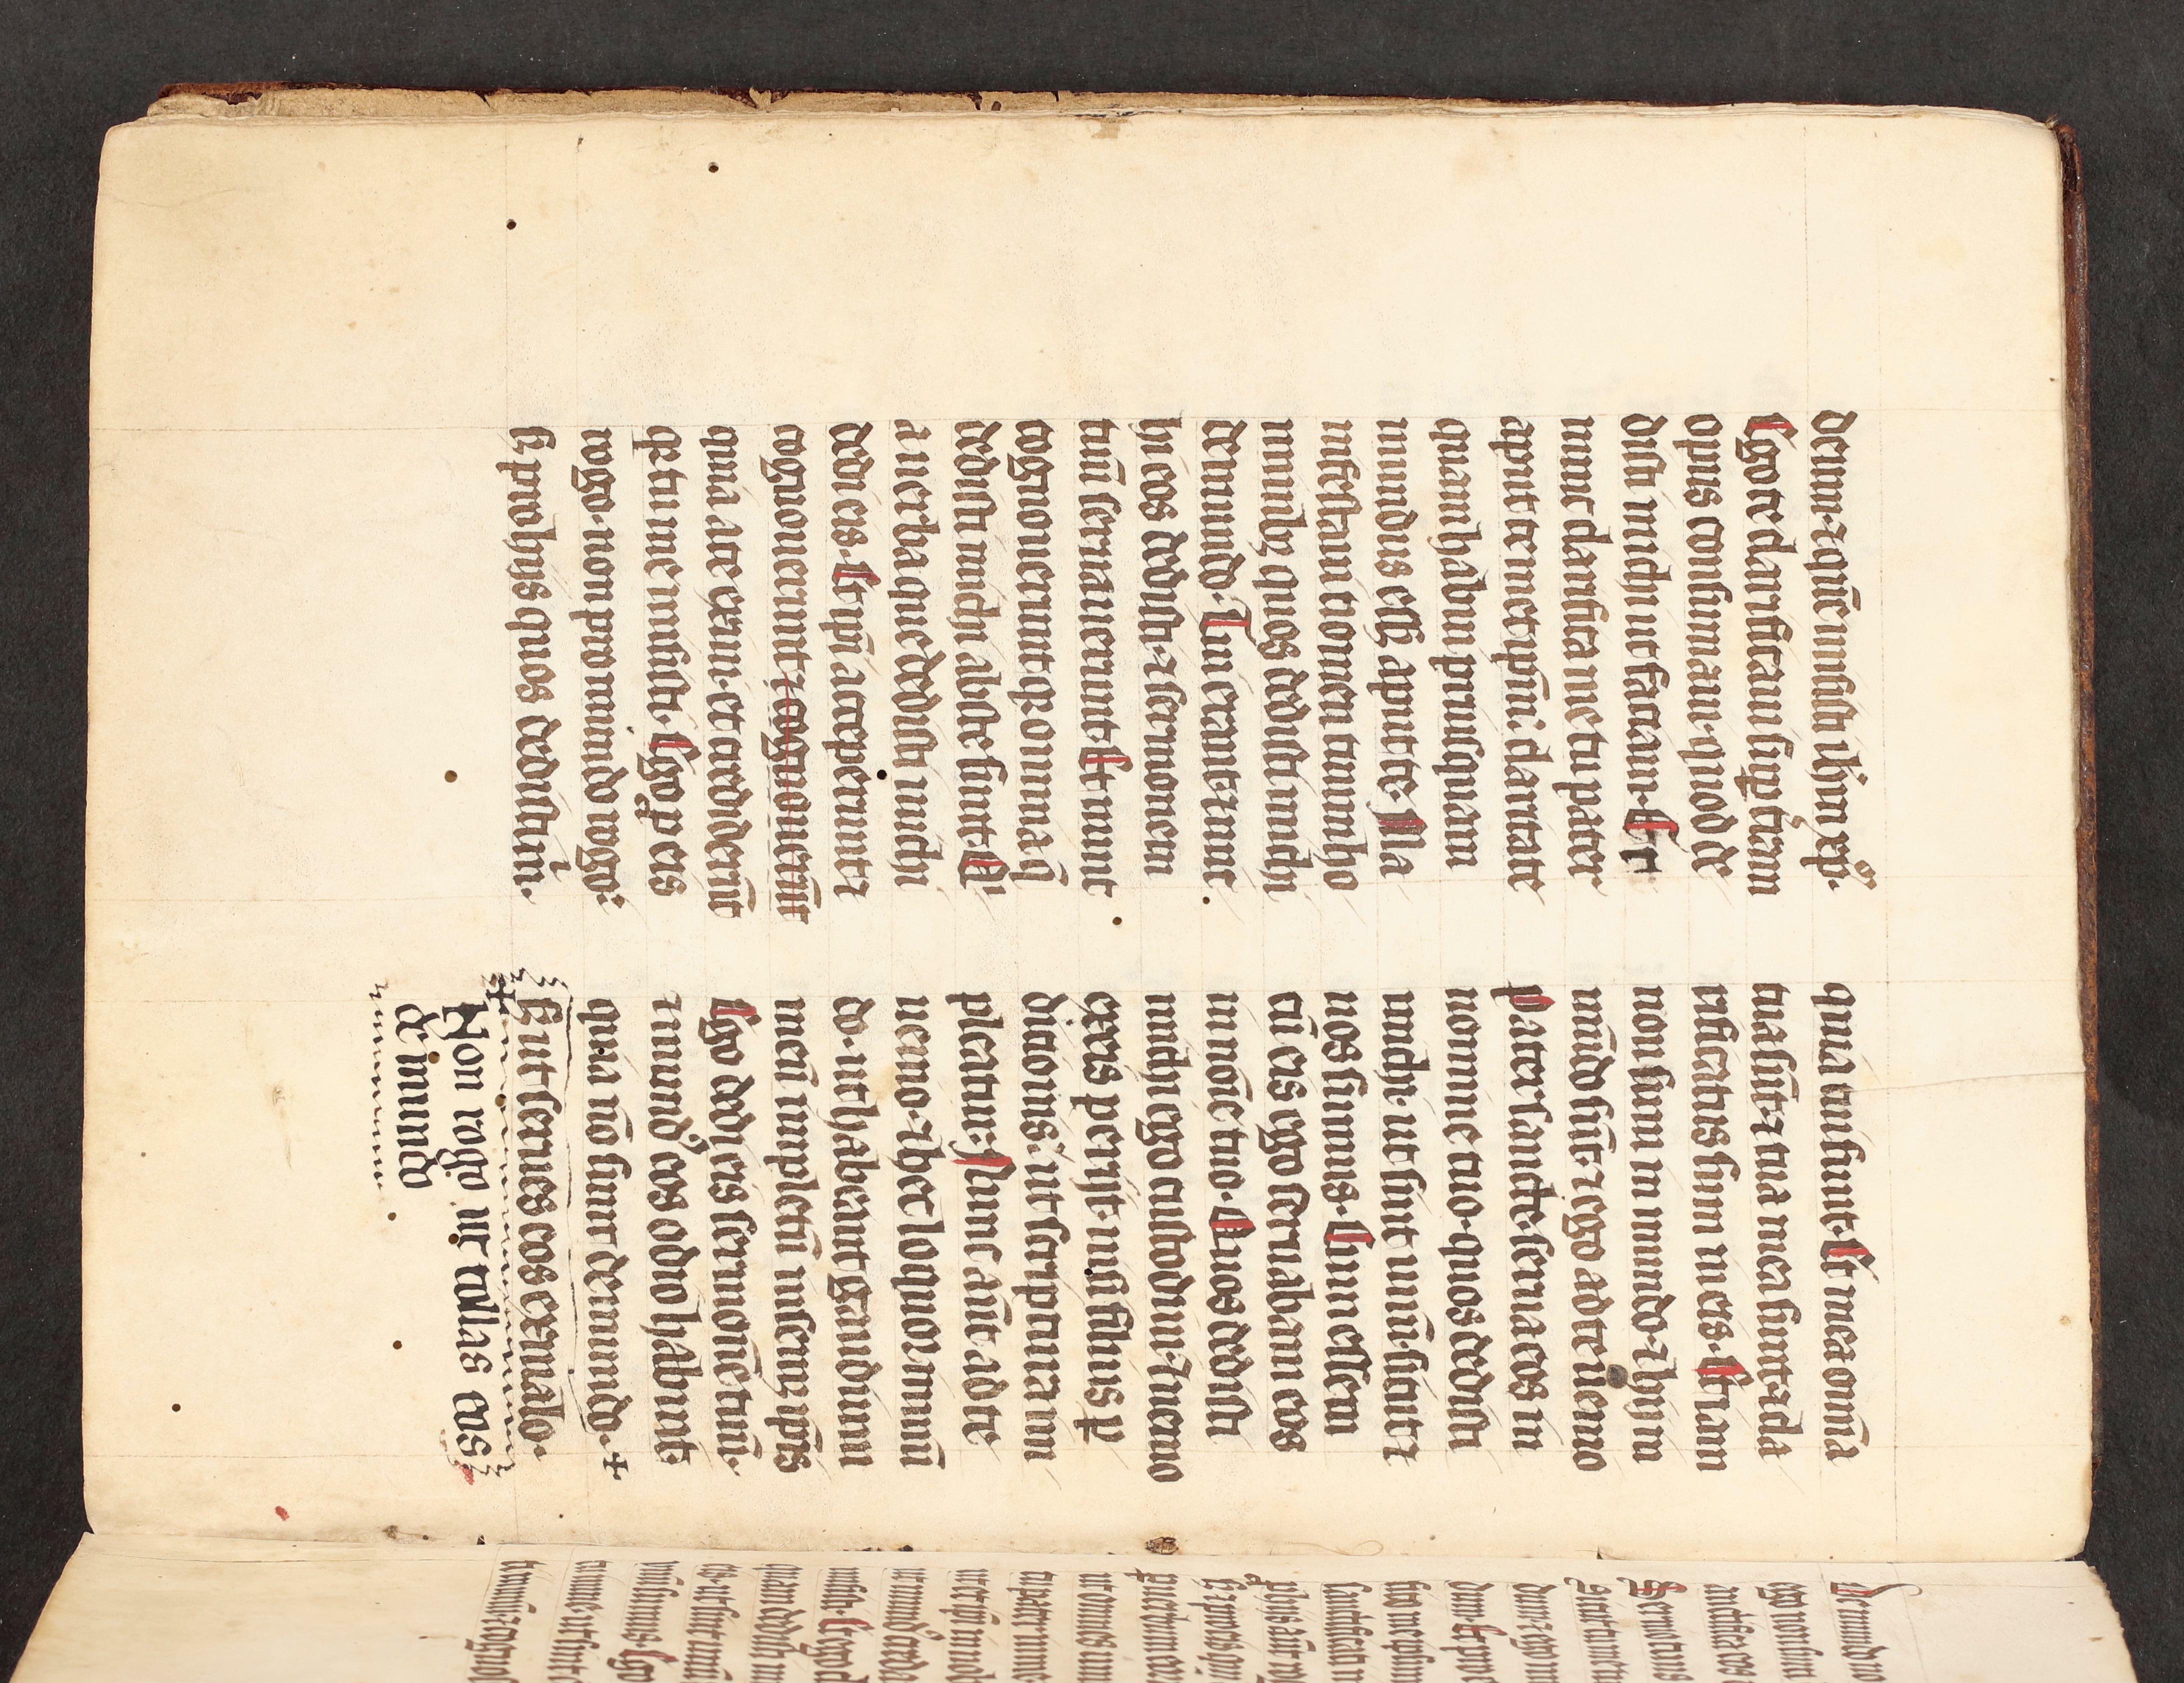 deum·⁊ quē misisti ihm xpm·
Ego te clarificaui sup terram
opus consumaui·quod de
disti michi ut faciam·Et
nunc clarifica me tu pater
aput temetipm: claritate
quam habui priusquam
mundus esset aput te·Ma
nifestaui nomen tuum ho
minibꝫ quos dedisti michi
de mundo·Tui erant ⁊ mi
hi eos dedisti·⁊ sermonem
tuū seruauerunt·Et nunc
cognouerunt qꝫ omnia q̄
dedisti michi abs te sunt·Qi
a uerba que dedisti michi
dedi eis·Et ipi acceperunt ⁊
cognouerunt ⁊ cognouerūt
quia a te exiui·et crediderūt
qꝫ tu me misisti·Ego ꝓ eis
rogo·non pro mundo rogo:
Sꝫ pro hijs quos dedisti m̄·
quia tui sunt·Et mea omīa
tua sūt·⁊ tua mea sunt·⁊ cla
rificatus sum in eis·Et iam
non sum in mundo·⁊ hij in
mūdo sūt·⁊ ego ad te uenio
Pater sancte·serua eos in
nomine tuo·quos dedisti
michi·ut sint unū·sicut ⁊
nos sumus·Cum essem
cū eis ego seruabam eos
in noīe tuo·Quos dedisti
michi ego custodiui·⁊ nemo
ex eis perijt·nisi filius ꝑ
ditionis: ut scriptura im
pleatur·Nunc aūt ad te
uenio·⁊ hec loquor in mū
do·ut habeant gaudium
meū impletū in semꝫ ipīs
Ego dedi eis sermonē tuū·
⁊ mund⁹ eos odio habuit·
quia nō sunt de mundo·+
Sꝫ ut serues eos ex malo·
+ Non rogo ut tollas eos
de mundo
De mundo no
ego non sum